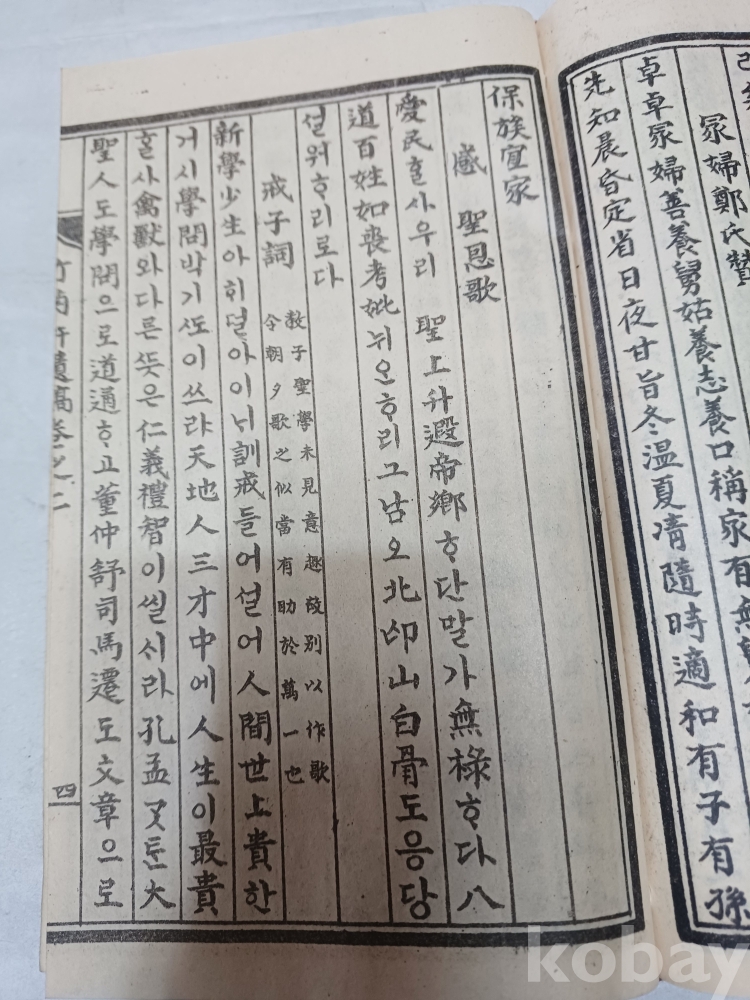 冢婦鄭氏贊
卓卓冢婦善養舅姑養志養口稱家有無
先知晨昏定省日夜甘旨冬溫夏凊隨時適和有子有孫
保族宜家
感 聖恩歌
愛民ᄒᆞᆯ사우리 聖上升遐帝鄕ᄒᆞ단말가無祿ᄒᆞ다八
道百姓如喪考妣뉘오ᄒᆞ리그남오北邙山白骨도응당
설워ᄒᆞ리로다
戒子詞 敎子聖學未見意趣故別以作歌
令朝夕歌之似當有助於萬一也
新學少生아ᄒᆡ덜아이ᄂᆡ訓戒들어셜어人間世上貴한
거시學問박기ᄯᅩ이쓰랴天地人三才中에人生이最貴
ᄒᆞᆯ사禽獸와다른ᄯᅳᆺ은仁義禮智이씰ᄉᆡ라孔孟ᄀᆞᆺ튼大
聖人도學問으로道通ᄒᆞ고董仲舒司馬遷도文章으로
遺稿卷之二
四
kobay